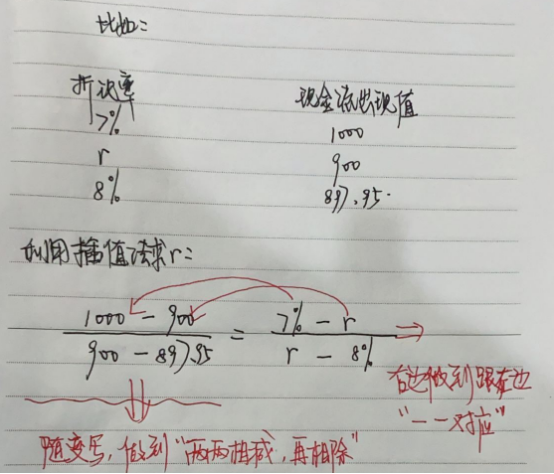 比如：
折现率 现金流出现值
7% 1000
r 900
8% 897.95.
利用插值法求r：
1000 - 900 = 7% - r
900 - 897.95 r - 8%
右边做到跟左边
"一一对应"
随变写，做到"两两相减，再相除"